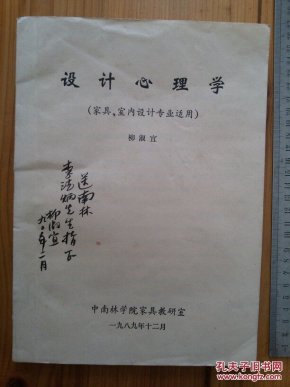 设计心理学
(家具、室内设计专业适用)
柳淑宜
送南林
李
先生指正
柳淑宜
九〇年二月
中南林学院家具教研室
一九八九年十二月
孔夫子旧书网